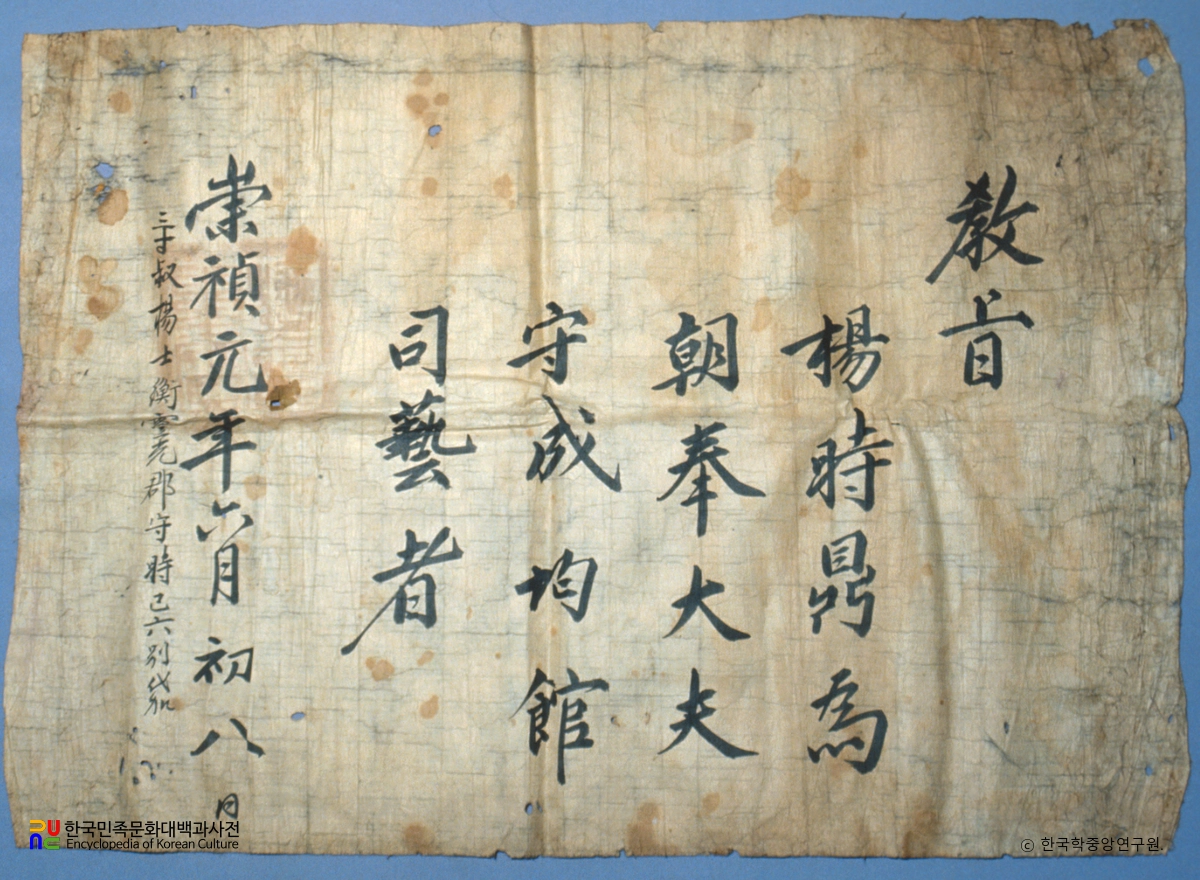 教旨
楊時鼎爲
朝奉大夫
守成均館
司藝者
崇禎元年六月初八日
三寸叔楊士衡靈光郡守時己六別代加
한국민족문화대백과사전
Encyclopedia of Korean Culture
ⓒ 한국학중앙연구원.